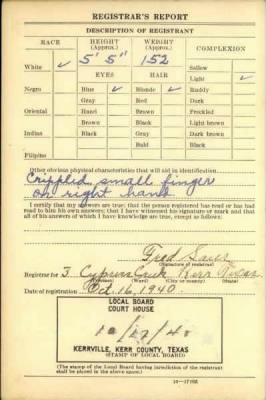 REGISTRAR'S REPORT
DESCRIPTION OF REGISTRANT
RACE HEIGHT (Approx.) WEIGHT (Approx.) COMPLEXION
5' 5" 152
White ✓ Sallow
EYES HAIR Light ✓
Negro Blue ✓ Blonde ✓ Ruddy
Gray Red Dark
Oriental Hazel Brown Freckled
Brown Black Light brown
Indian Black Gray Dark brown
Bald Black
Filipino
Other obvious physical characteristics that will aid in identification
Crippled small finger
on right hand
I certify that my answers are true; that the person registered has read or has had
read to him his own answers; that I have witnessed his signature or mark and that
all of his answers of which I have knowledge are true, except as follows:
Fred
(Signature of registrar)
Registrar for 3 Cypress Creek Kerr Texas
(Precinct) (Ward) (City or county) (State)
Date of registration Oct. 16, 1940.
LOCAL BOARD
COURT HOUSE
10/17/40
KERRVILLE, KERR COUNTY, TEXAS
(STAMP OF LOCAL BOARD)
(The stamp of the Local Board having jurisdiction of the registrant
shall be placed in the above space.)